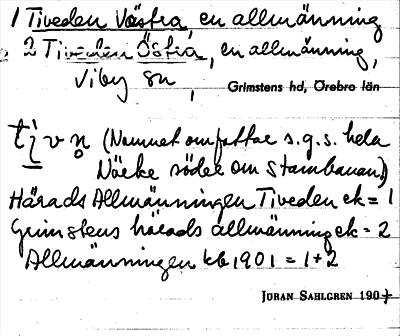 1 Tiveden Västra, en allmänning
2 Tiveden Östra, en allmänning,
Viby sn, Grimstens hd, Örebro län
tịvṇ (Namnet omfattar s.g.s. hela
Närke söder om stambanan)
Härads Allmänningen Tiveden ek = 1
Grimstens härads allmänning ek = 2
Allmänningen kb 1901 = 1+2
JÖRAN SAHLGREN 1907